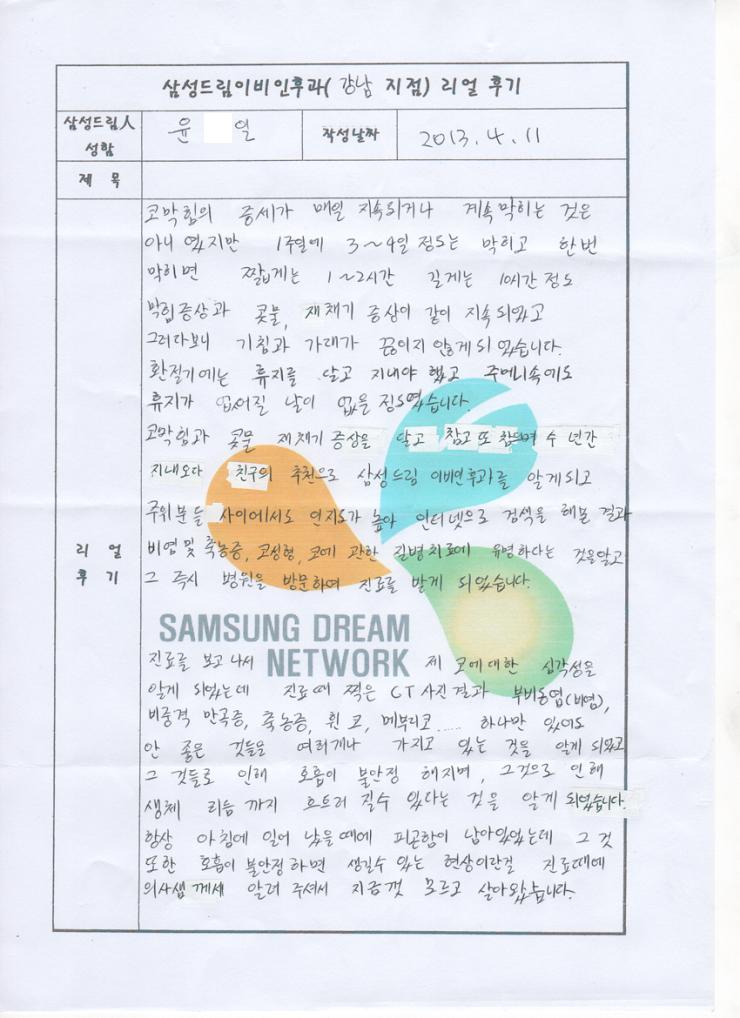 삼성드림이비인후과( 강남 지점) 리얼 후기
삼성드림人
성함
윤 일
작성날짜
2013. 4. 11
제 목
코막힘의 증세가 매일 지속되거나 계속 막히는 것은
아니 였지만 1주일에 3~4일 정도는 막히고 한번
막히면 짧게는 1~2시간 길게는 10시간 정도
막힘증상과 콧물, 재채기 증상이 같이 지속 되었고
그러다보니 기침과 가래가 끊이지 않게 되 었습니다.
환절기에는 휴지를 달고 지내야 했고 주머니속에도
휴지가 없어질 날이 없을 정도였습니다.
코막힘과 콧물 재채기 증상을 달고 참고 또 참으며 수 년간
지내오다 친구의 추천으로 삼성드림 이비인후과를 알게되고
주위분들 사이에서도 인지도가 높아 인터넷으로 검색을 해본 결과
리 얼
후 기
비염 및 축농증, 코성형, 코에 관한 질병치료에 유명하다는 것을알고
그 즉시 병원을 방문하여 진료를 받게 되었습니다.
SAMSUNG DREAM
NETWORK
진료를 보고 나서 제 코에대한 심각성을
알게 되었는데 진료때 찍은 CT사진결과 부비동염(비염),
비중격 만곡증, 축농증, 휜 코, 메부리코..... 하나만 있어도
안 좋은 것들을 여러개나 가지고 있는 것을 알게 되었고
그 것들로 인해 호흡이 불안정 해지며, 그것으로 인해
생체 리듬 까지 흐트러 질수 있다는 것을 알게 되었습니다.
항상 아침에 일어 났을때에 피곤함이 남아있었는데 그 것
또한 호흡이 불안정하면 생길수 있는 현상이란걸 진료때에
의사샘 께서 알려 주셔서 지금껏 모르고 살아왔습니다.